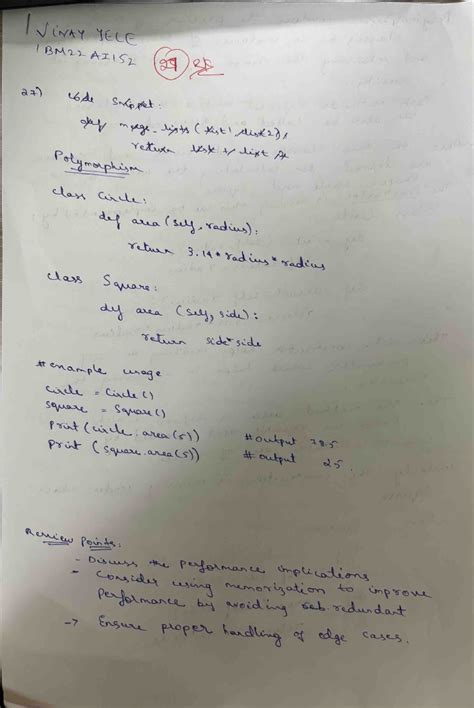 VINAY YELE
1BM22AI152
29
27) Code Snippet:
def merge_lists (list1, list2),
return list 1 + list 2
Polymorphism
class Circle:
def area (self, radius):
return 3.14 * radius * radius
class Square:
def area (self, side):
return side * side
# example usage
circle = Circle()
square = Square()
print (circle.area(5)) # output 78.5
print (square.area(5)) # output 25.
Review Points:
- Discuss the performance implications
- Consider using memorization to improve
performance by avoiding redundant
-> Ensure proper handling of edge cases.